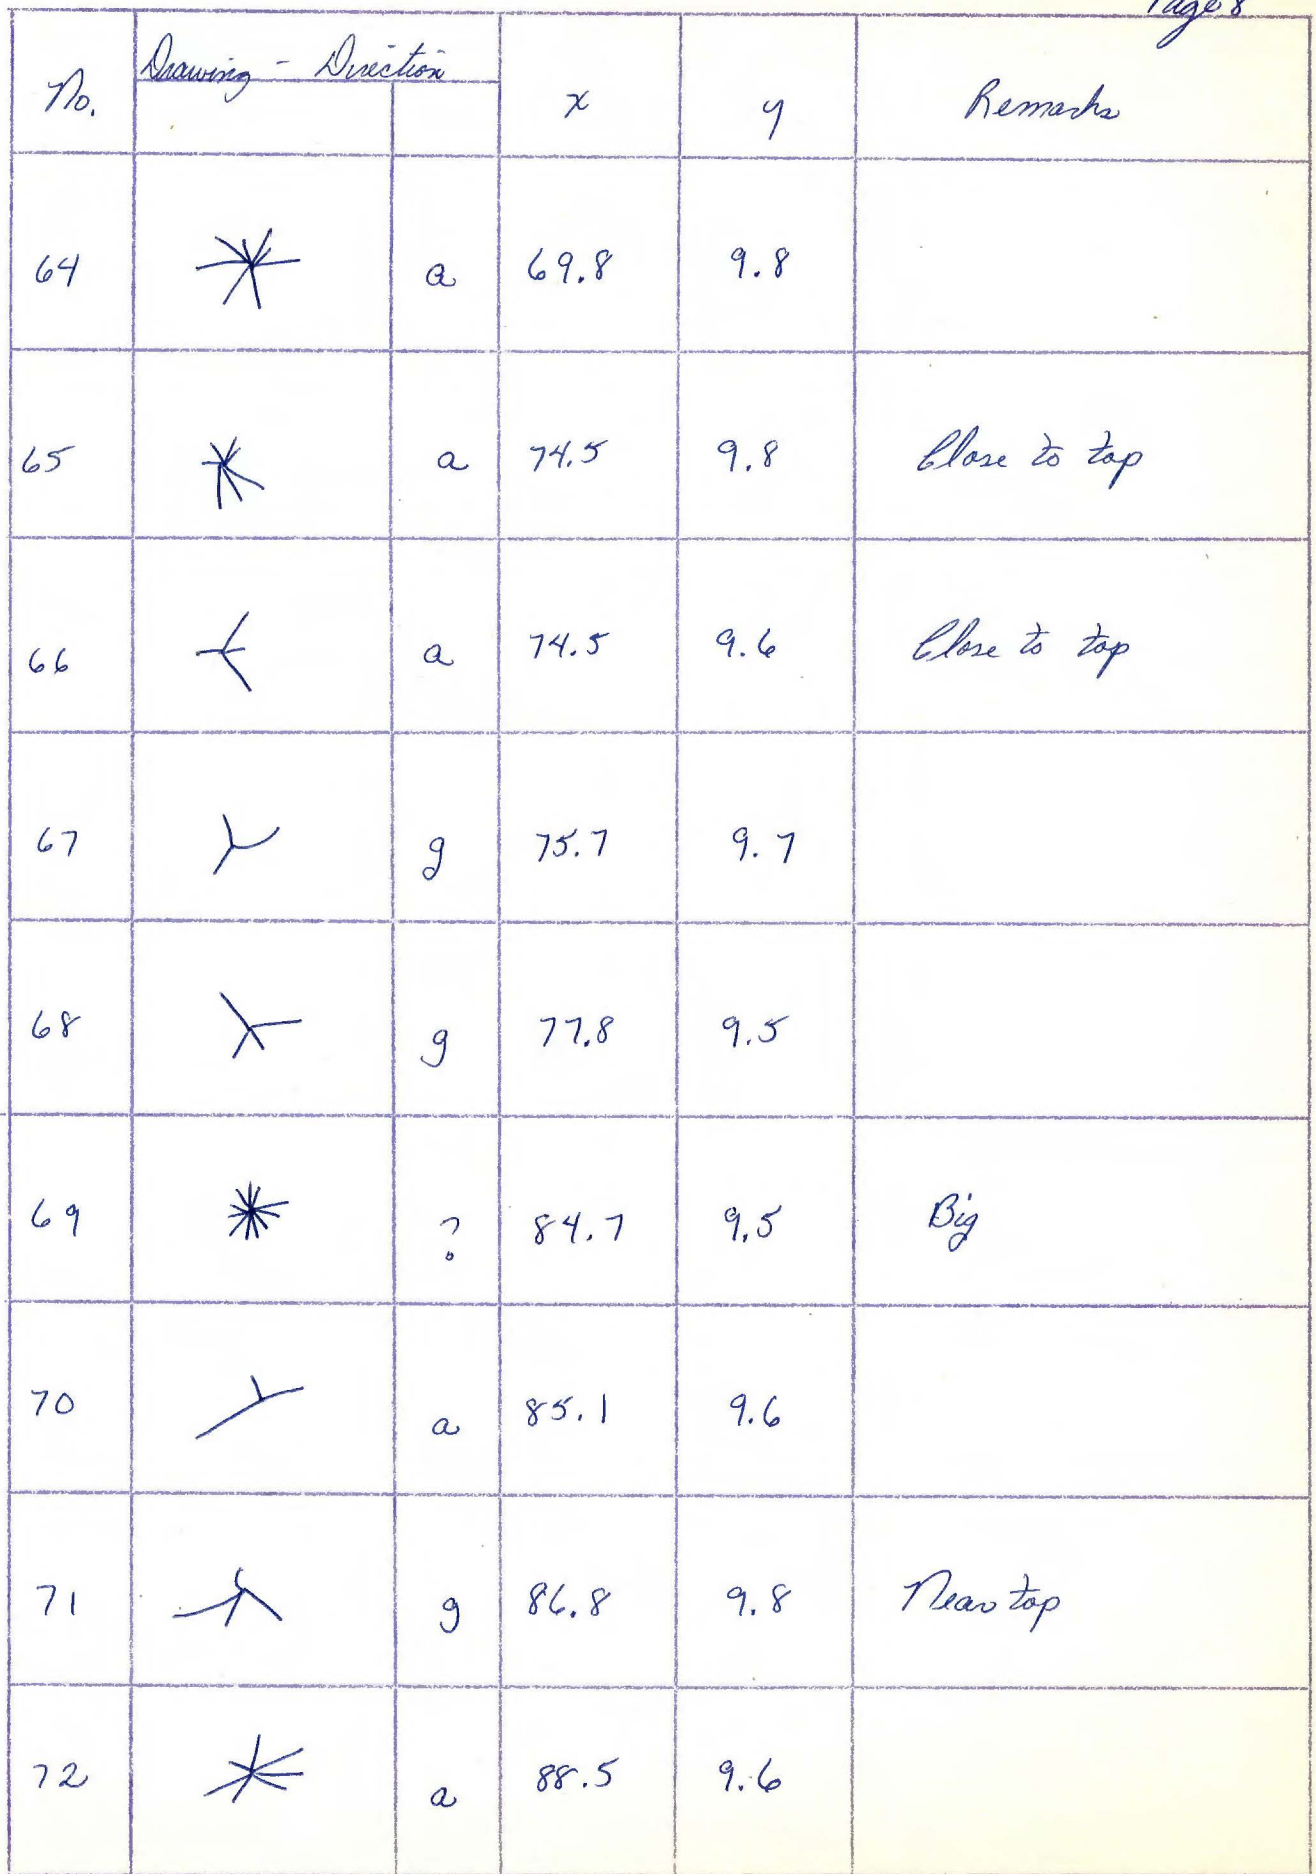 Page 8
No. Drawing - Direction x y Remarks
64 a 69.8 9.8
65 a 74.5 9.8 Close to top
66 a 74.5 9.6 Close to top
67 g 75.7 9.7
68 g 77.8 9.5
69 ? 84.7 9.5 Big
70 a 85.1 9.6
71 g 86.8 9.8 Near top
72 a 88.5 9.6